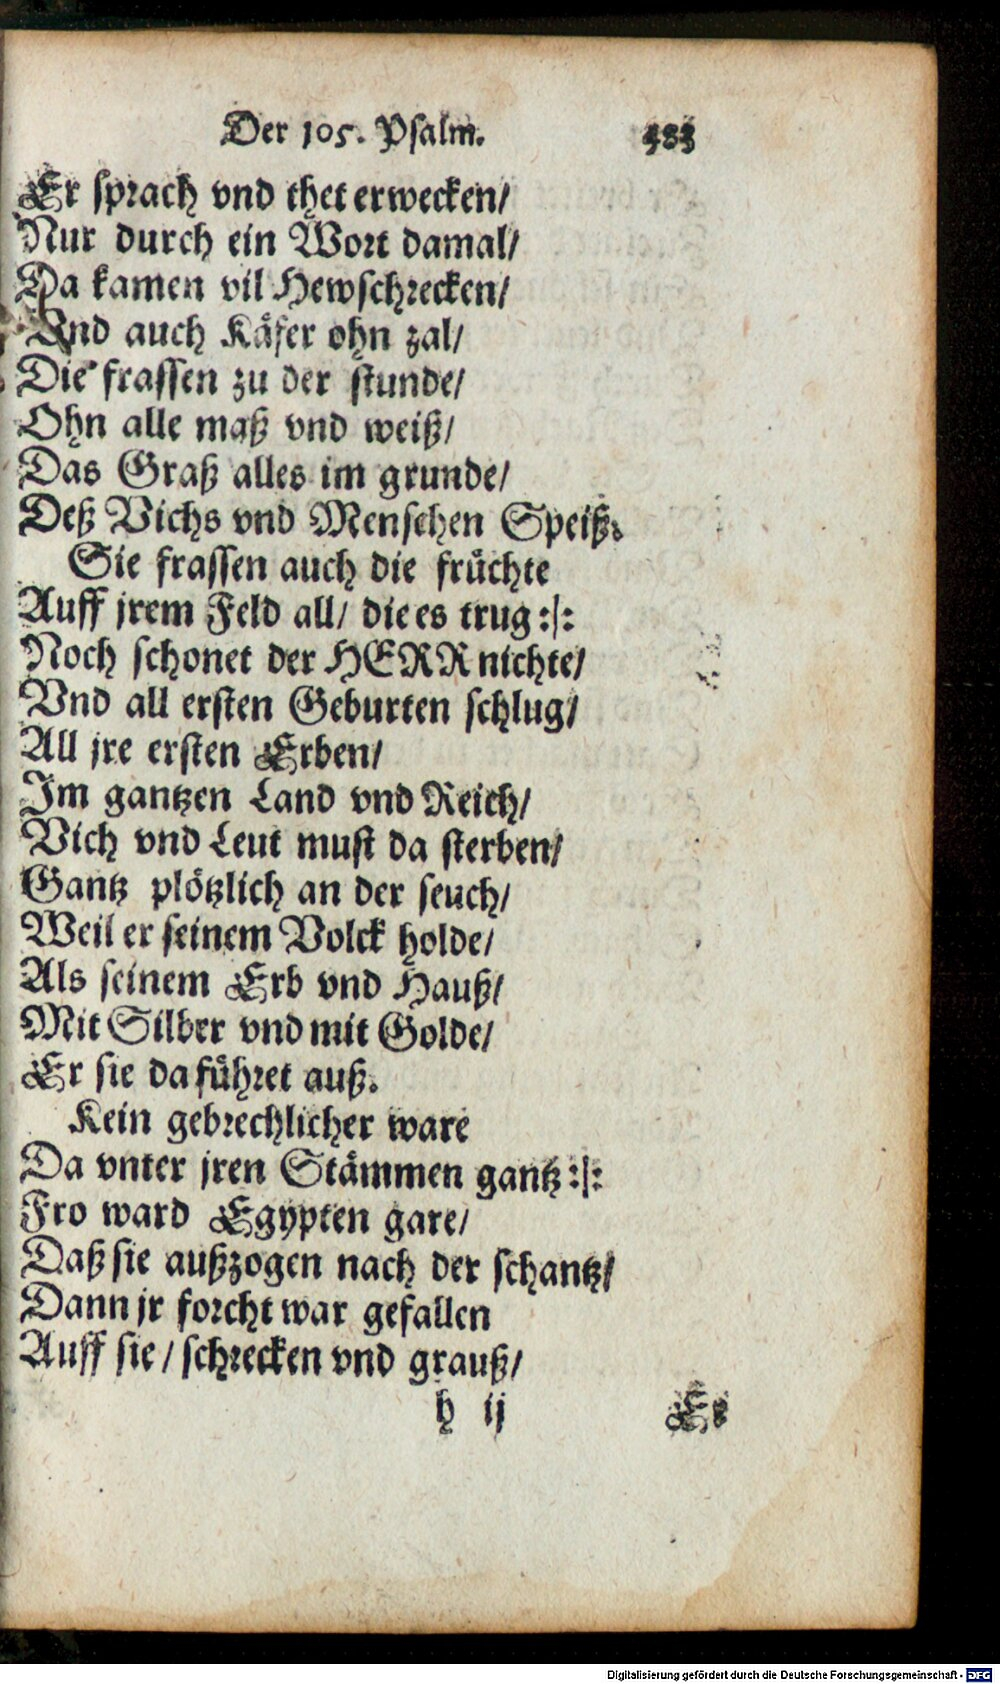 Der 105. Psalm. 483
Er sprach vnd thet erwecken/
Nur durch ein Wort damal/
Da kamen vil Hewschrecken/
Vnd auch Käfer ohn zal/
Die frassen zu der stunde/
Ohn alle maß vnd weiß/
Das Graß alles im grunde/
Deß Vichs vnd Menschen Speiß.
Sie frassen auch die früchte
Auff jrem Feld all/ die es trug :/:
Noch schonet der HERR nichte/
Vnd all ersten Geburten schlug/
All jre ersten Erben/
Im gantzen Land vnd Reich/
Vich vnd Leut must da sterben/
Gantz plötzlich an der seuch/
Weil er seinem Volck holde/
Als seinem Erb vnd Hauß/
Mit Silber vnd mit Golde/
Er sie da führet auß.
Kein gebrechlicher ware
Da vnter jren Stämmen gantz :/:
Fro ward Egypten gare/
Daß sie außzogen nach der schantz/
Dann jr forcht war gefallen
Auff sie / schrecken vnd grauß/
h ij Es
Digitalisierung gefördert durch die Deutsche Forschungsgemeinschaft - DFG